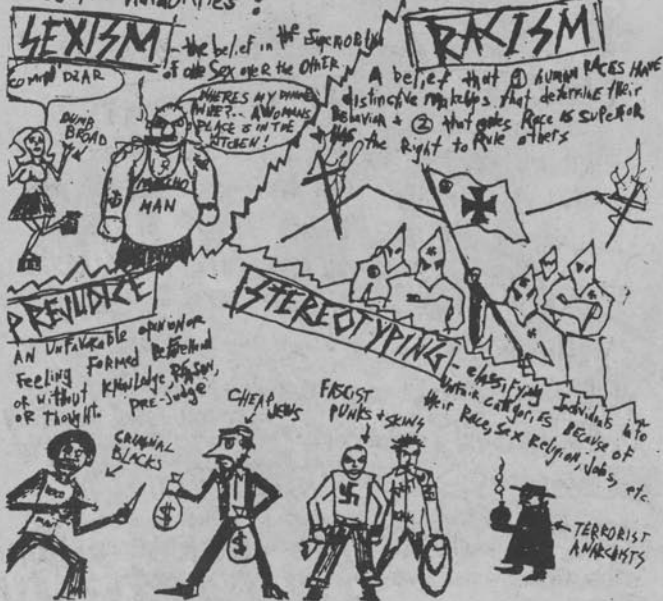 SEXISM
- the belief in the Superiority
of one Sex over the Other
COMIN' DEAR
DUMB
BROAD
WHERES MY DINNER
WIFE?... A WOMANS
PLACE IS IN THE
KITCHEN!
MACHO
MAN
RACISM
A belief that ① human RACES HAVE
distinctive makeups that determine their
Behavior + ② that ones Race is Superior
+ HAS the Right to Rule others
PREJUDICE
AN Unfavorable opinion or
Feeling Formed Beforehand
or without Knowledge, Reason,
OR Thought. PRE-Judge
STEREOTYPING
- classifying Individuals into
certain categories BECAUSE of
their Race, Sex Religion, Jobs, etc.
CRIMINAL
BLACKS
CHEAP
JEWS
$
$
FASCIST
PUNKS + SKINS
TERRORIST
ANARCHISTS